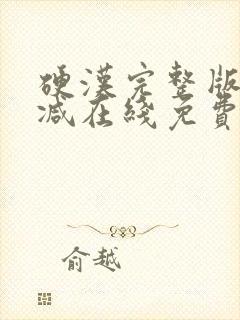 硬漢完整版
減在綫免費
俞越